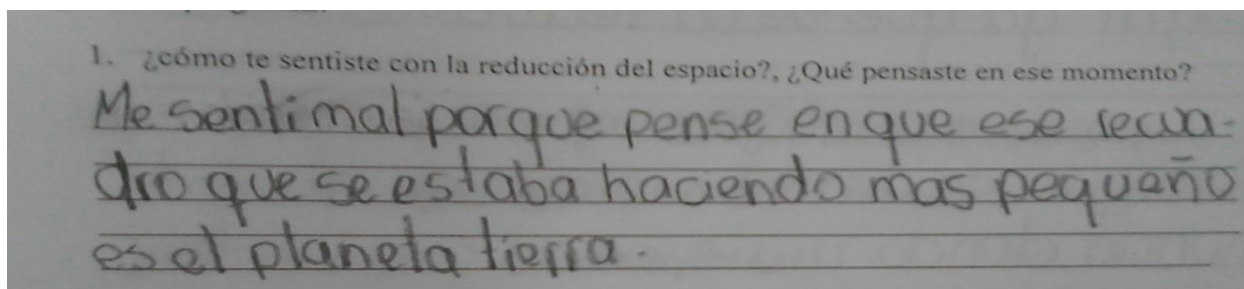 1. ¿cómo te sentiste con la reducción del espacio?, ¿Qué pensaste en ese momento?
Me sentí mal porque pense en que ese recua-
dro que se estaba haciendo mas pequeño
es el planeta tierra.